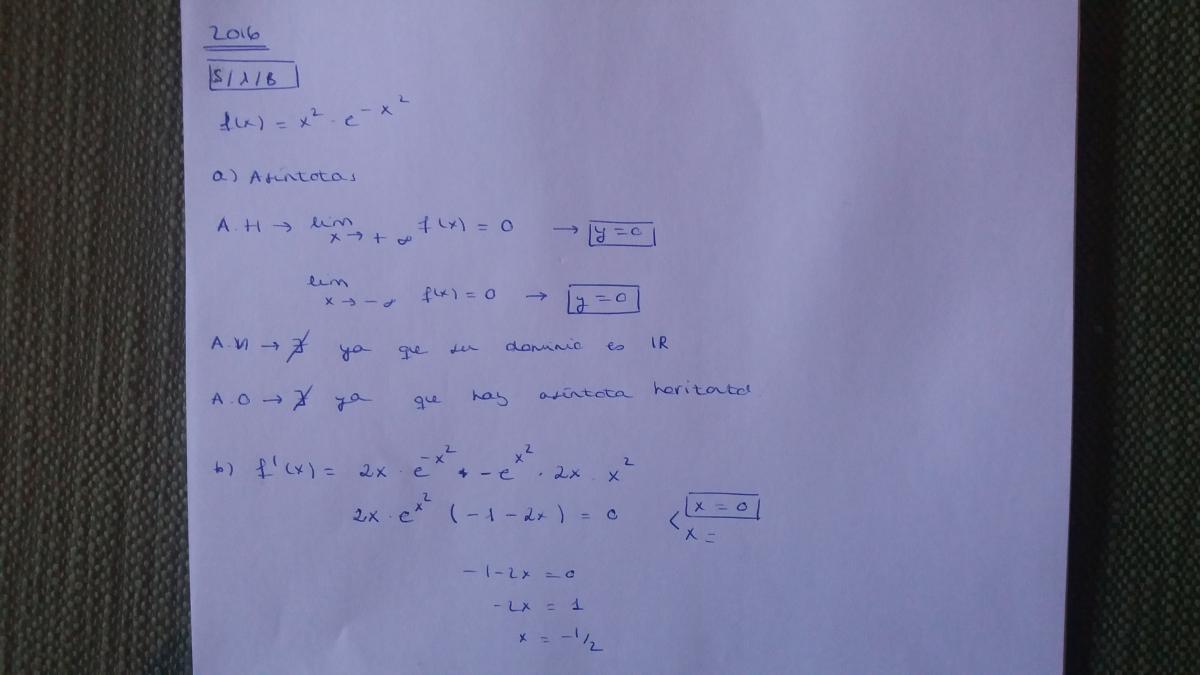 2016
S/1/B
f(x) = x² · e^{-x²}
a) Asíntotas
A.H → lim x→+∞ f(x) = 0 → y = 0
lim x→-∞ f(x) = 0 → y = 0
A.V → ∄ ya que su dominio es IR
A.O → ∄ ya que hay asíntota horitotal
b) f'(x) = 2x · e^{-x²} + -e^{x²} · 2x · x²
2x · e^{x²} (-1-2x) = 0 < x = 0
x =
-1-2x = 0
-2x = 1
x = -1/2